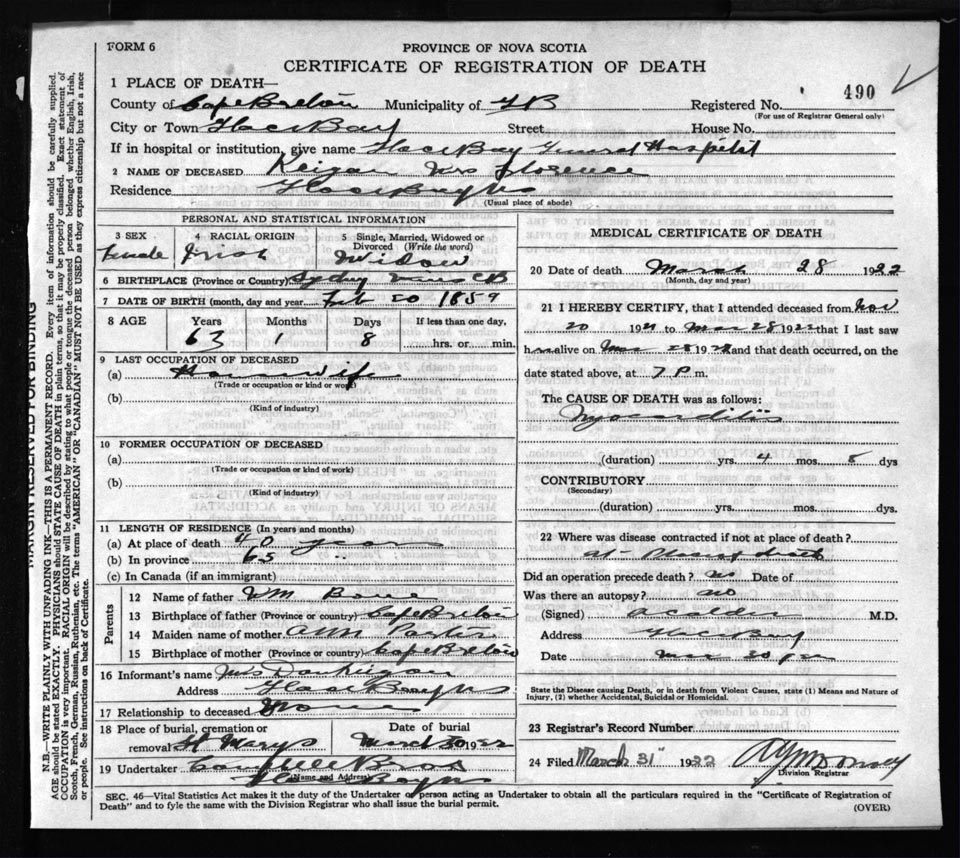 FORM 6
PROVINCE OF NOVA SCOTIA
CERTIFICATE OF REGISTRATION OF DEATH
1 PLACE OF DEATH—
County of Cape Breton Municipality of GB Registered No. 490
(For use of Registrar General only)
City or Town Glace Bay Street House No.
If in hospital or institution, give name Glace Bay General Hospital
2 NAME OF DECEASED Mrs Florence
Residence Glace Bay NS
(Usual place of abode)
PERSONAL AND STATISTICAL INFORMATION
3 SEX female
4 RACIAL ORIGIN Irish
5 Single, Married, Widowed or Divorced (Write the word) Widow
6 BIRTHPLACE (Province or Country) Sydney Mines CB
7 DATE OF BIRTH (month, day and year) Feb 20 1859
8 AGE Years Months Days If less than one day,
63 1 8 hrs. or min.
9 LAST OCCUPATION OF DECEASED
(a) Housewife
(Trade or occupation or kind of work)
(b)
(Kind of industry)
10 FORMER OCCUPATION OF DECEASED
(a)
(Trade or occupation or kind of work)
(b)
(Kind of industry)
11 LENGTH OF RESIDENCE (In years and months)
(a) At place of death 40 years
(b) In province 63 "
(c) In Canada (if an immigrant)
Parents
12 Name of father Wm
13 Birthplace of father (Province or country) Cape Breton
14 Maiden name of mother Ann
15 Birthplace of mother (Province or country) Cape Breton
16 Informant's name Mrs Dan
Address Glace Bay NS
17 Relationship to deceased
18 Place of burial, cremation or removal St Marys
Date of burial March 30 1922
19 Undertaker Campbell Bros
Name and Address Glace Bay NS
MEDICAL CERTIFICATE OF DEATH
20 Date of death March 28 1922
(Month, day and year)
21 I HEREBY CERTIFY, that I attended deceased from Nov
20 1921 to Mar 28 1922 that I last saw
h alive on Mar 28 1922 and that death occurred, on the
date stated above, at 7 P m.
The CAUSE OF DEATH was as follows:
Myocarditis
(duration) yrs. 4 mos. 8 dys
CONTRIBUTORY
(Secondary)
(duration) yrs. mos. dys.
22 Where was disease contracted if not at place of death?
at Place of death
Did an operation precede death? no Date of
Was there an autopsy? no
(Signed) M.D.
Address Glace Bay
Date Mar 30
State the Disease causing Death, or in death from Violent Causes, state (1) Means and Nature of
Injury, (2) whether Accidental, Suicidal or Homicidal.
23 Registrar's Record Number
24 Filed March 31 1922
Division Registrar
SEC. 46—Vital Statistics Act makes it the duty of the Undertaker or person acting as Undertaker to obtain all the particulars required in the "Certificate of Registration of
Death" and to fyle the same with the Division Registrar who shall issue the burial permit.
(OVER)
MARGIN RESERVED FOR BINDING
N.B.—WRITE PLAINLY WITH UNFADING INK—THIS IS A PERMANENT RECORD. Every item of information should be carefully supplied.
AGE should be stated EXACTLY. PHYSICIANS should STATE CAUSE OF DEATH in plain terms, so that it may be properly classified. Exact statement of
OCCUPATION is very important. RACIAL ORIGIN will be described by stating to what people or tongue the deceased person belonged whether English, Irish,
Scotch, French, German, Russian, Ruthenian, etc. The terms "AMERICAN" OR "CANADIAN" MUST NOT BE USED as they express citizenship but not a race
or people. See instructions on back of Certificate.